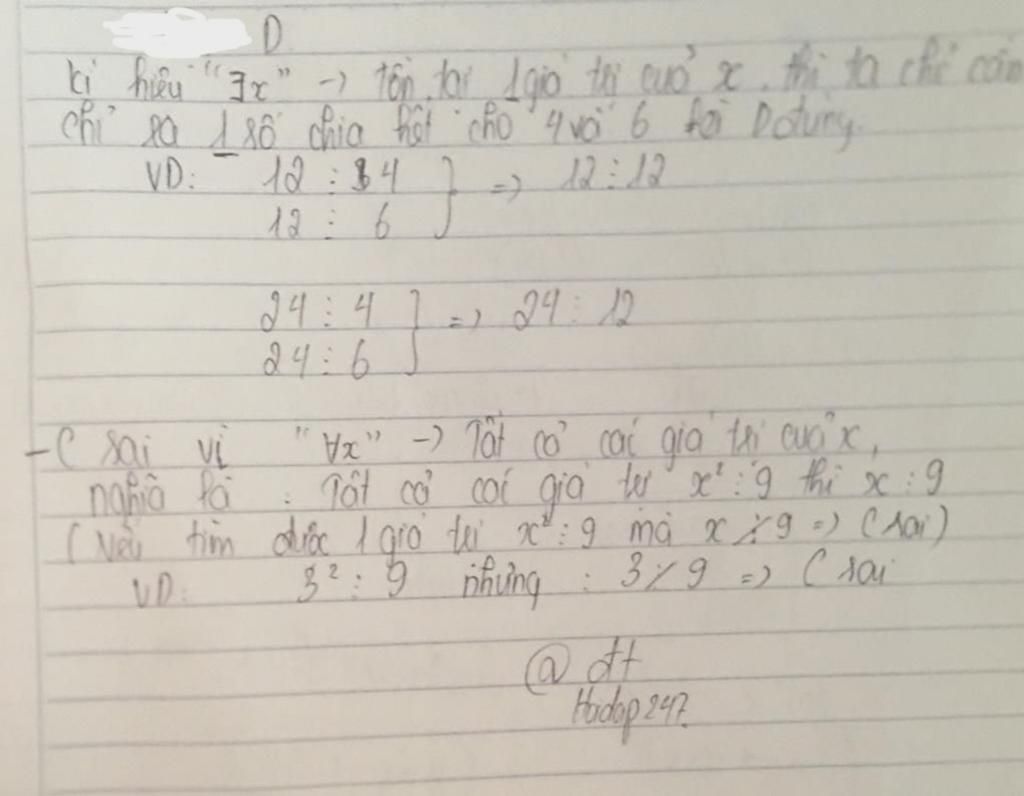 D
kí hiệu "∃x" → tồn tại 1 giá trị của x. thì ta chỉ cần
chỉ ra 1 số chia hết cho 4 và 6 là D đúng.
VD: 12 ⋮ 4 } => 12 ⋮ 12
12 ⋮ 6
24 ⋮ 4 } => 24 ⋮ 12
24 ⋮ 6
- C sai vì "∀x" → Tất cả các giá trị của x,
nghĩa là : Tất cả các giá trị x² ⋮ 9 thì x ⋮ 9
(Nếu tìm được 1 giá trị x² ⋮ 9 mà x ⋮̸ 9 => C sai)
VD: 3² ⋮ 9 nhưng : 3 ⋮̸ 9 => C sai
@ dtt
Hoidap247